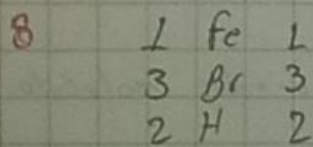 8 1 Fe 1
3 Br 3
2 H 2